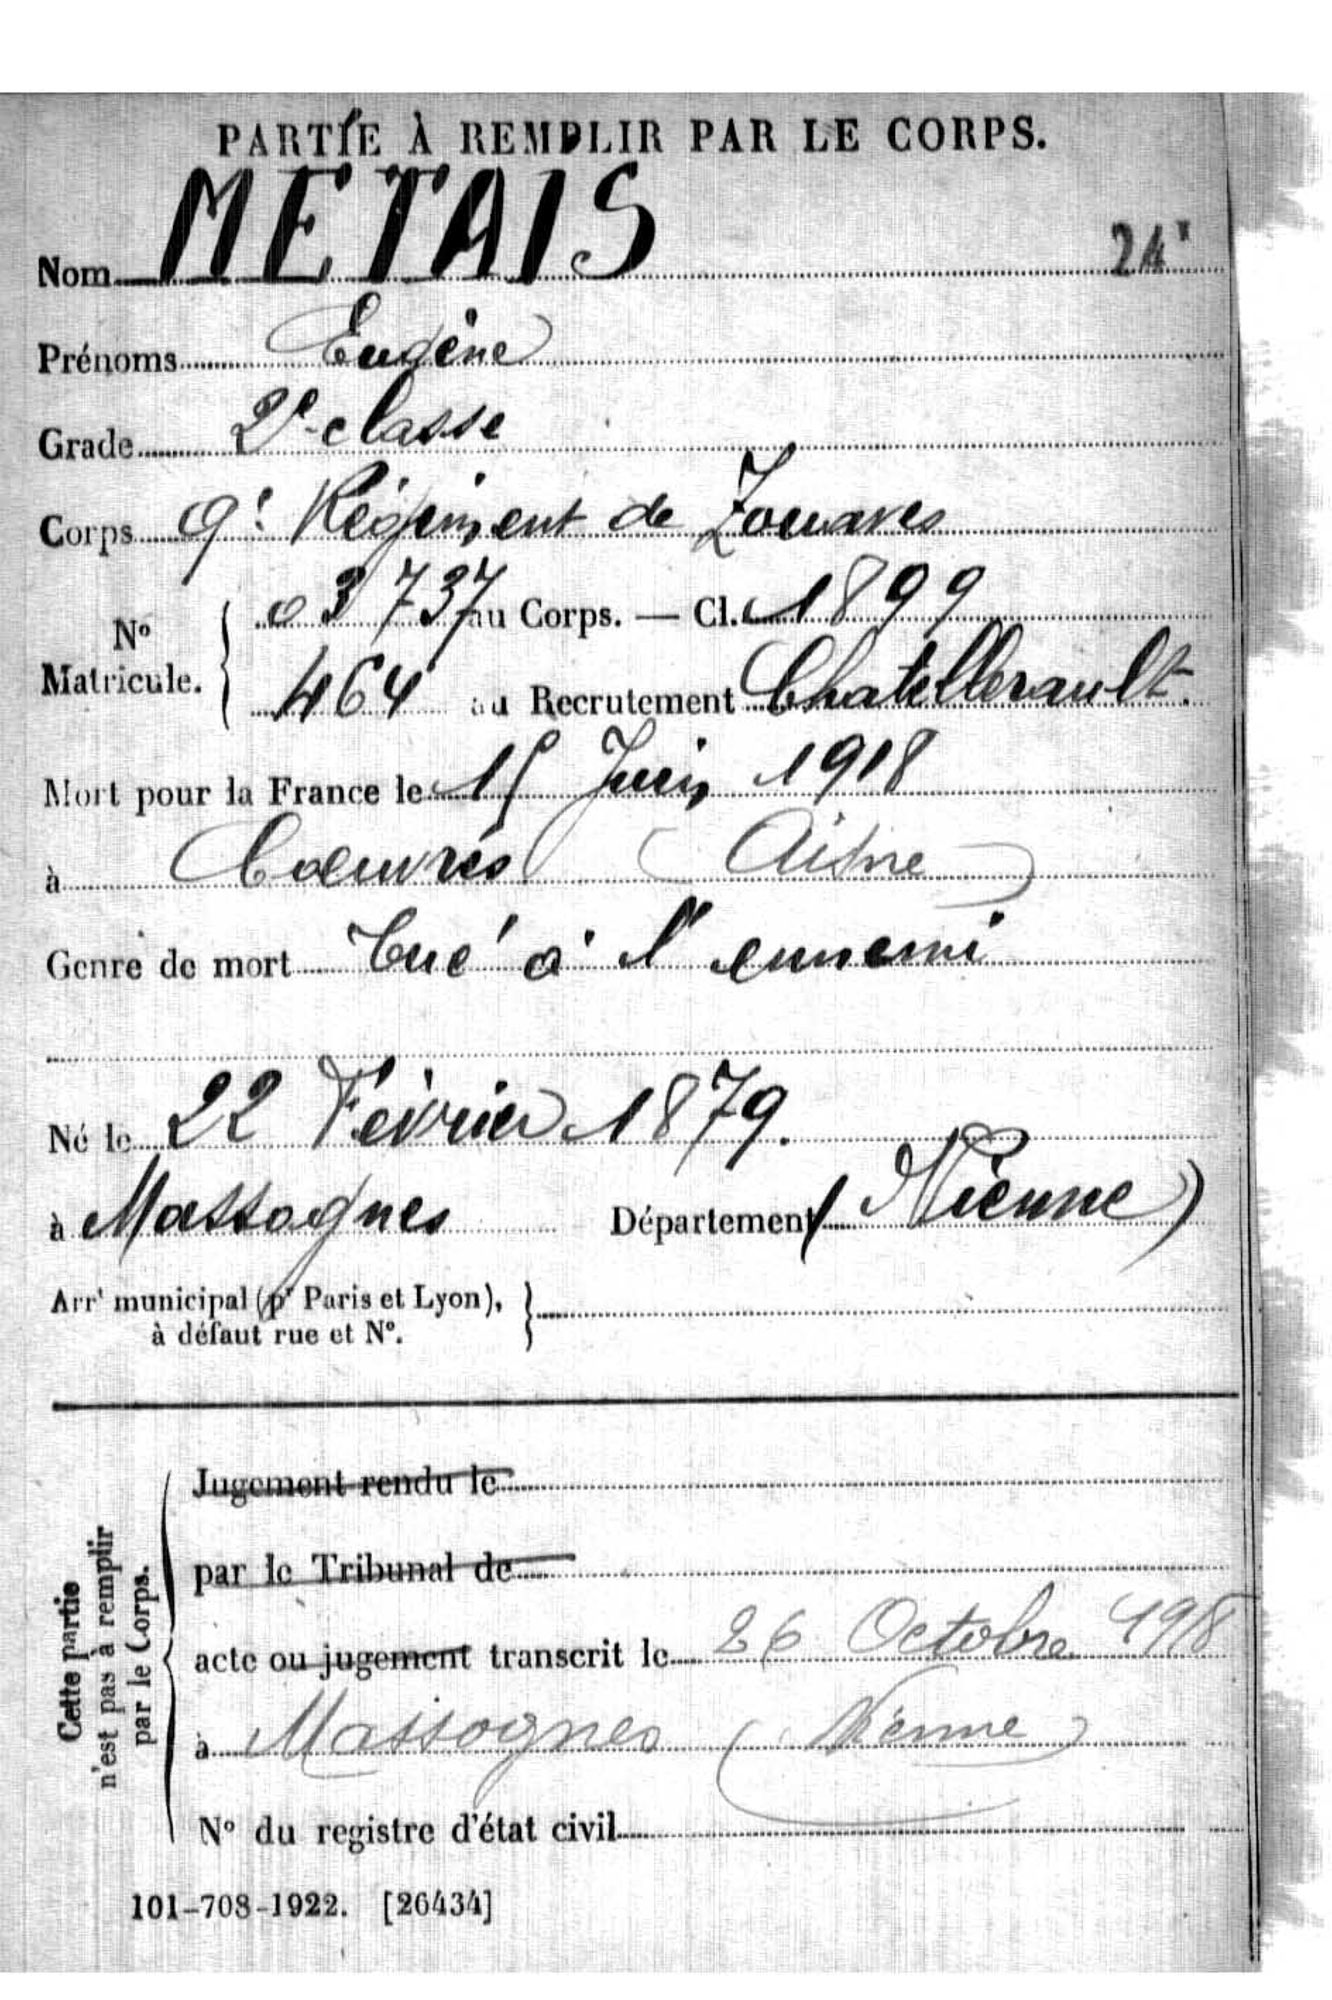 PARTIE À REMPLIR PAR LE CORPS.
Nom METAIS
Prénoms Eugène
Grade 2e classe
Corps 9e Régiment de Zouaves
No Matricule. { 03737 au Corps. — Cl. 1899
464 au Recrutement Chatellerault.
Mort pour la France le 15 Juin 1918
à Coeuvres (Aisne)
Genre de mort tué à l'ennemi
Né le 22 Février 1879.
à Massognes Département (Vienne)
Arrt municipal (pr Paris et Lyon),
à défaut rue et No.
Cette partie
n'est pas à remplir
par le Corps.
Jugement rendu le
par le Tribunal de
acte ou jugement transcrit le 26 Octobre 1918
à Massognes (Vienne)
No du registre d'état civil
101-708-1922. [26434]